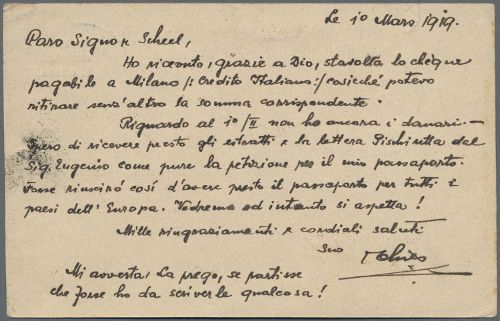 Le 10 Mars 1919.
Caro Signor Scheel,
Ho ricevuto, grazie a Dio, stavolta lo chèque
pagabile a Milano /: Credito Italiano :/ cosicché potevo
ritirare senz'altro la somma corrispondente.
Riguardo al 10/II non ho ancora i danari. —
Spero di ricevere presto gli estratti e la lettera Pischiutta dal
Sig. Eugenio come pure la petizione per il mio passaporto.
Forse riuscirò così d'avere presto il passaporto per tutti i
paesi dell' Europa. Vedremo ed intanto si aspetta!
Mille ringraziamenti e cordiali saluti
Suo
Mi avverta, La prego, se partisse
che forse ho da scriverle qualcosa!